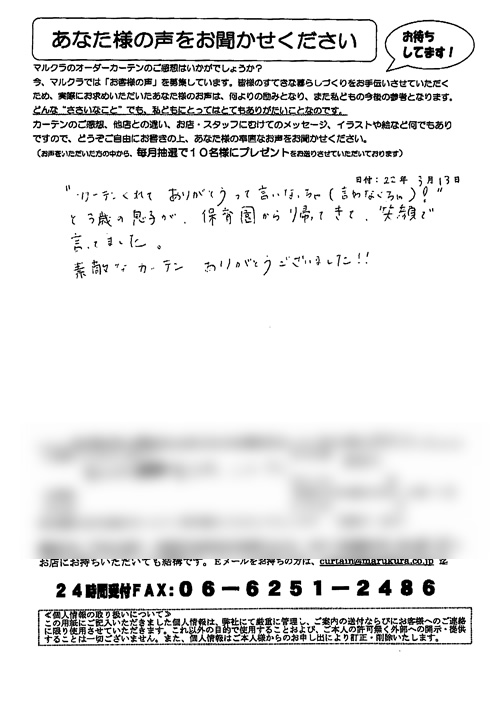 あなた様の声をお聞かせください
お待ち
してます！
マルクラのオーダーカーテンのご感想はいかがでしょうか？
今、マルクラでは「お客様の声」を募集しています。皆様のすてきな暮らしづくりをお手伝いさせていただく
ため、実際にお求めいただいたあなた様のお声は、何よりの励みとなり、また私どもの今後の参考となります。
どんな“ささいなこと”でも、私どもにとってはとてもありがたいことなのです。
カーテンのご感想、他店との違い、お店・スタッフにむけてのメッセージ、イラストや絵など何でもあり
ですので、どうぞご自由にお書きの上、あなた様の率直なお声をお聞かせください。
（お声をいただいた方の中から、毎月抽選で１０名様にプレゼントをお送りさせていただいております）
日付：22年 3月13日
“カーテンくれて ありがとうって言いないちゃ(言わなくちゃ)!”
と 3歳の息子が、保育園から帰ってきて、笑顔で
言ってました。
素敵なカーテン ありがとうございました!!
お店にお持ちいただいても結構です。Eメールをお持ちの方は、curtain@marukura.co.jp 迄
２４時間受付FAX:０６－６２５１－２４８６
≪個人情報の取り扱いについて≫
この用紙にご記入いただきました個人情報は、弊社にて厳重に管理し、ご案内の送付ならびにお客様へのご連絡
に限り使用させていただきます。これ以外の目的で使用することおよび、ご本人の許可無く外部への開示・提供
することは一切ございません。また、個人情報はご本人様からのお申し出により訂正・削除いたします。